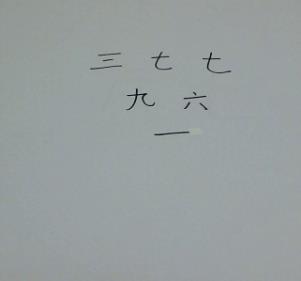 三 七 七
九 六
一